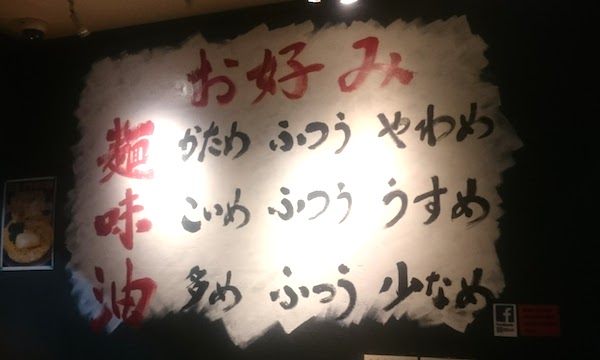 お好み
麺 かため ふつう やわめ
味 こいめ ふつう うすめ
油 多め ふつう 少なめ
f